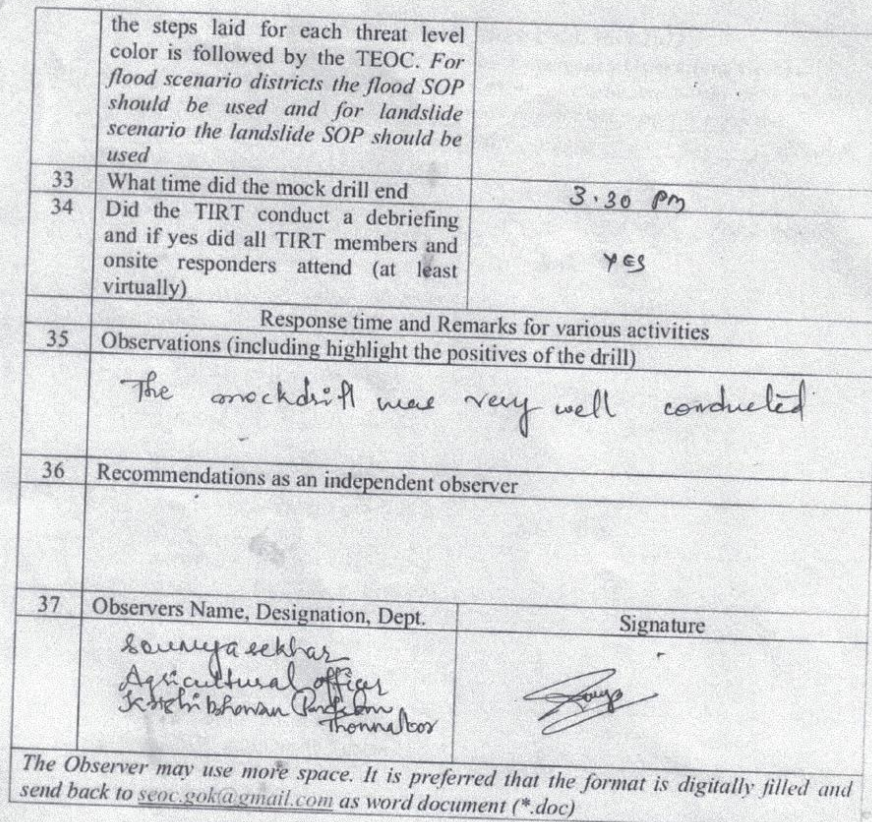 the steps laid for each threat level
color is followed by the TEOC. For
flood scenario districts the flood SOP
should be used and for landslide
scenario the landslide SOP should be
used
33 What time did the mock drill end 3.30 PM
34 Did the TIRT conduct a debriefing
and if yes did all TIRT members and
onsite responders attend (at least
virtually) YES
Response time and Remarks for various activities
35 Observations (including highlight the positives of the drill)
The mockdrill was very well conducted
36 Recommendations as an independent observer
37 Observers Name, Designation, Dept. Signature
Soumya sekhar
Agricultural officer
Krishi bhavan
The Observer may use more space. It is preferred that the format is digitally filled and
send back to seoc.gok@gmail.com as word document (*.doc)